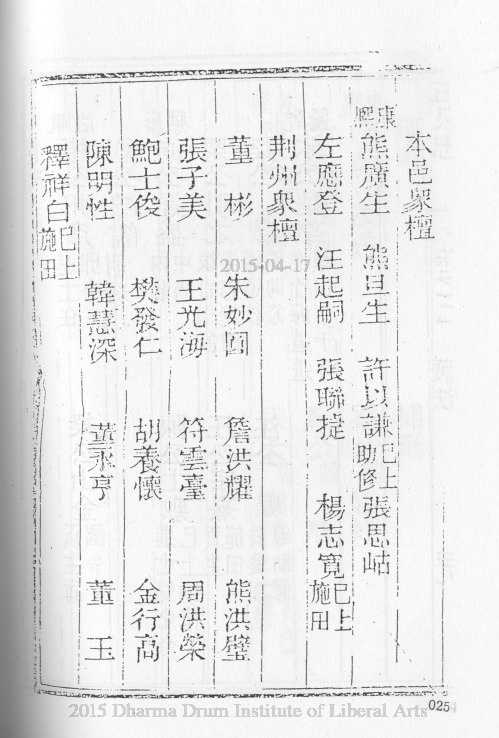 本邑衆檀
康熙熊廣生 熊旦生 許以謙已上助修張思岵
左應登 汪起嗣 張聯捷 楊志寬已上施田
荆州衆檀
董彬 朱妙圓 詹洪耀 熊洪璧
張子美 王光海 符雲臺 周洪榮
鮑士俊 樊發仁 胡養懷 金行高
陳明性 韓慧深 董永亨 董玉
釋祥白已上施田
2015-04-17
025
2015 Dharma Drum Institute of Liberal Arts